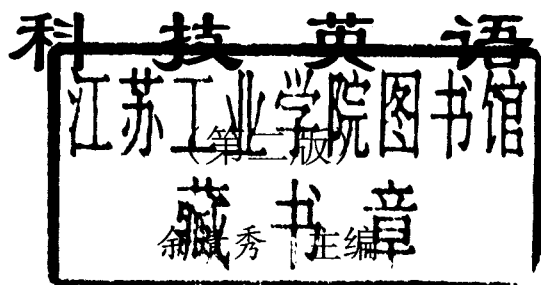 科技英语
江苏工业学院图书馆
(第二版)
藏书章
秀 主编